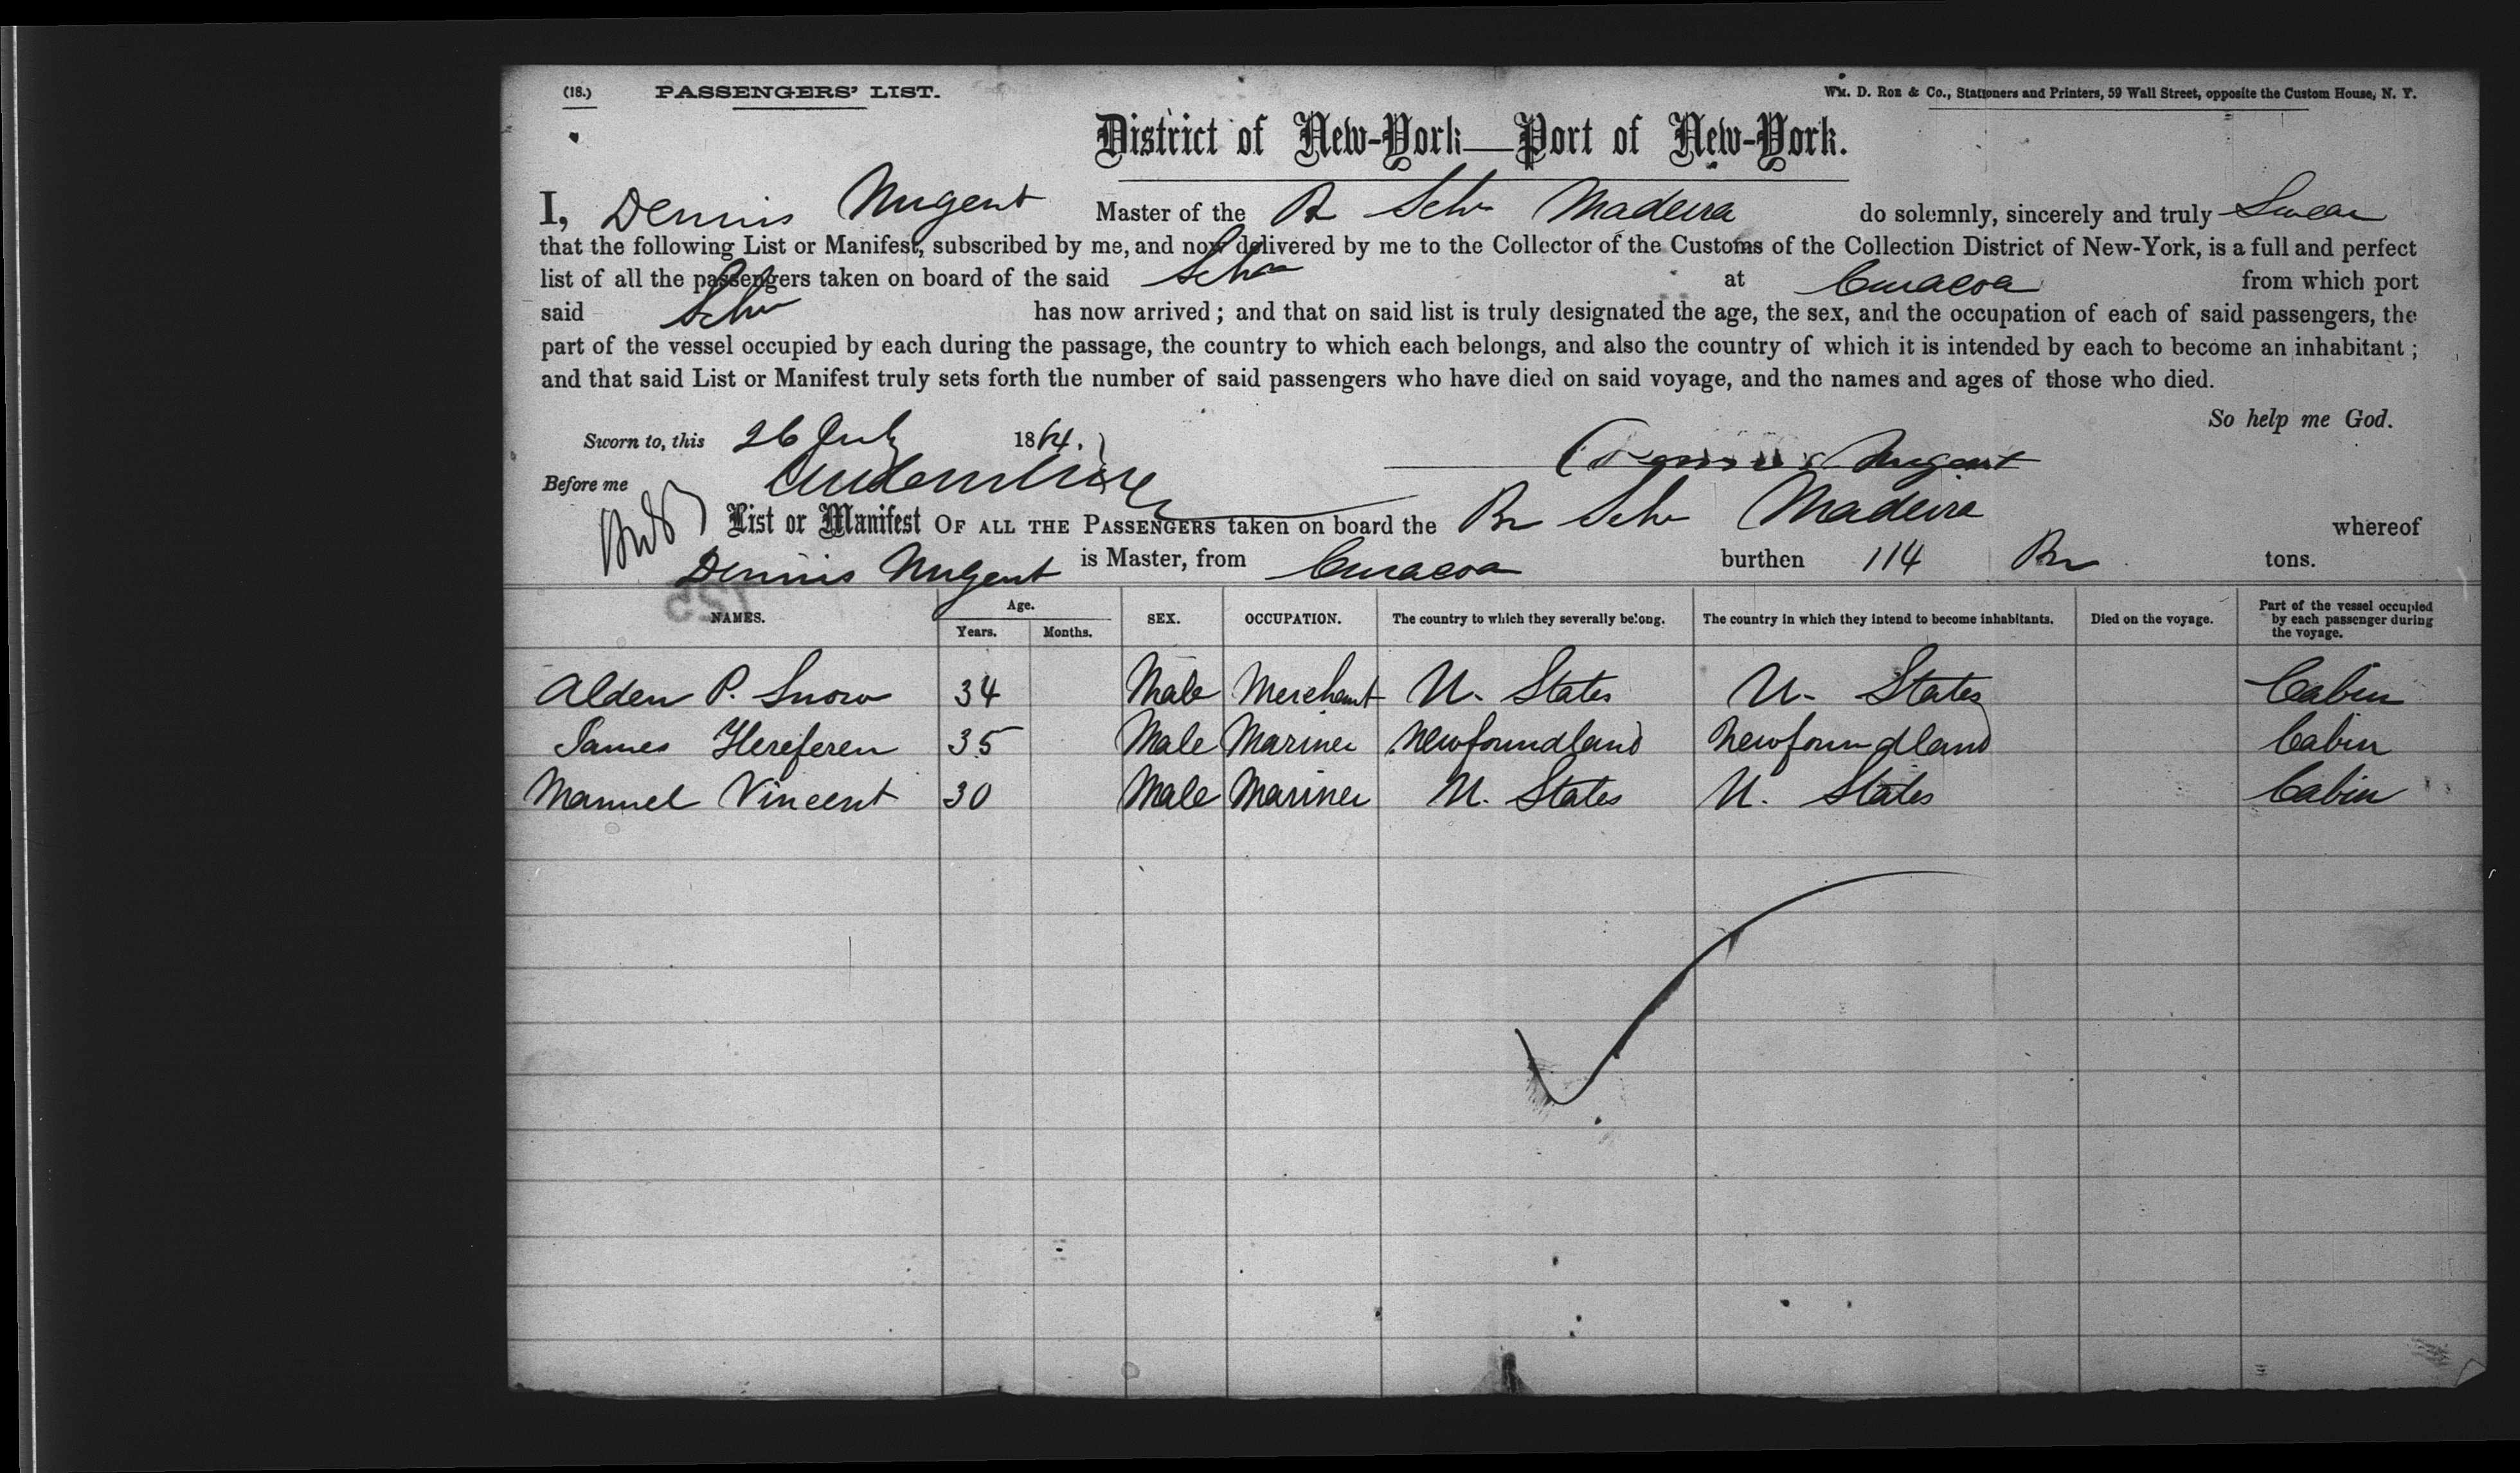 (18.) PASSENGERS' LIST. Wm. D. Roe & Co., Stationers and Printers, 59 Wall Street, opposite the Custom House, N. Y.
District of New-York—Port of New-York.
I, Dennis Nugent Master of the Br Schr Madeira do solemnly, sincerely and truly Swear
that the following List or Manifest, subscribed by me, and now delivered by me to the Collector of the Customs of the Collection District of New-York, is a full and perfect
list of all the passengers taken on board of the said Schr at Curacoa from which port
said Schr has now arrived; and that on said list is truly designated the age, the sex, and the occupation of each of said passengers, the
part of the vessel occupied by each during the passage, the country to which each belongs, and also the country of which it is intended by each to become an inhabitant;
and that said List or Manifest truly sets forth the number of said passengers who have died on said voyage, and the names and ages of those who died.
So help me God.
Sworn to, this 26 July 1864.
Dennis Nugent
Before me
List or Manifest OF ALL THE PASSENGERS taken on board the Br Schr Madeira whereof
Dennis Nugent is Master, from Curacoa burthen 114 Br tons.
NAMES. Age. Years. Months. SEX. OCCUPATION. The country to which they severally belong. The country in which they intend to become inhabitants. Died on the voyage. Part of the vessel occupied by each passenger during the voyage.
Alden P. Snow 34 Male Merchant U. States U. States Cabin
James Hereferen 35 Male Mariner Newfoundland Newfoundland Cabin
Manuel Vincent 30 Male Mariner U. States U. States Cabin